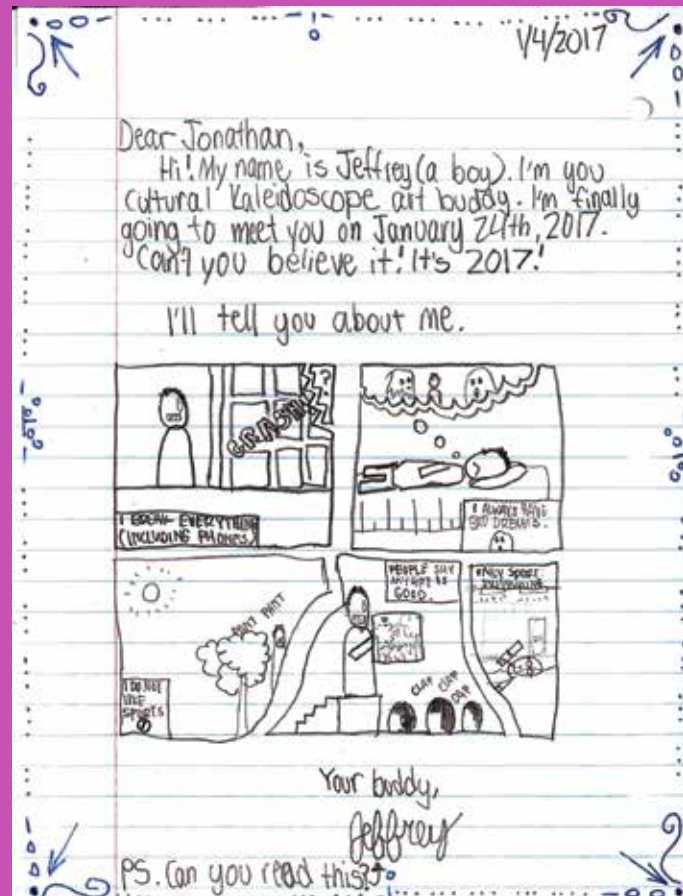 1/4/2017
Dear Jonathan,
Hi! My name is Jeffrey (a boy). I'm you
Cultural Kaleidoscope art buddy. I'm finally
going to meet you on January 24th, 2017.
Can't you believe it! It's 2017!
I'll tell you about me.
CRASH!
?
I BREAK EVERYTHING
(INCLUDING PHONES)
I ALWAYS HAVE
BAD DREAMS.
PANT PANT
I DO NOT
LIKE
SPORTS
PEOPLE SAY
MY ART IS
GOOD.
CLAP
CLAP
CLAP
ONLY SPORT
Your buddy,
Jeffrey
PS. Can you read this?